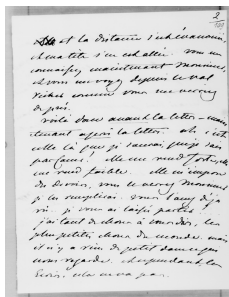 2
et la distance s'est évanouie
et ma tête s'en est allée. vous me
connaissez maintenant Monsieur,
et vous me voyez depuis le val
Richer comme vous me verrez
de près.
voilà donc avant la lettre - main-
tenant après la lettre. oh c'est
celle là que je saurai, que je sais
par cœur. Elle me rend forte, elle
me rend faible. Elle m'impose
des devoirs, vous le verrez Monsieur
je les remplirai. vous l'avez déjà
vu. je vous ai laissé partir.
j'ai tant de choses à vous dire, les
plus petites choses du monde, mais
il n'y a rien de petit dans ce qui
nous regarde. cependant les
écrire, cela ne va pas.